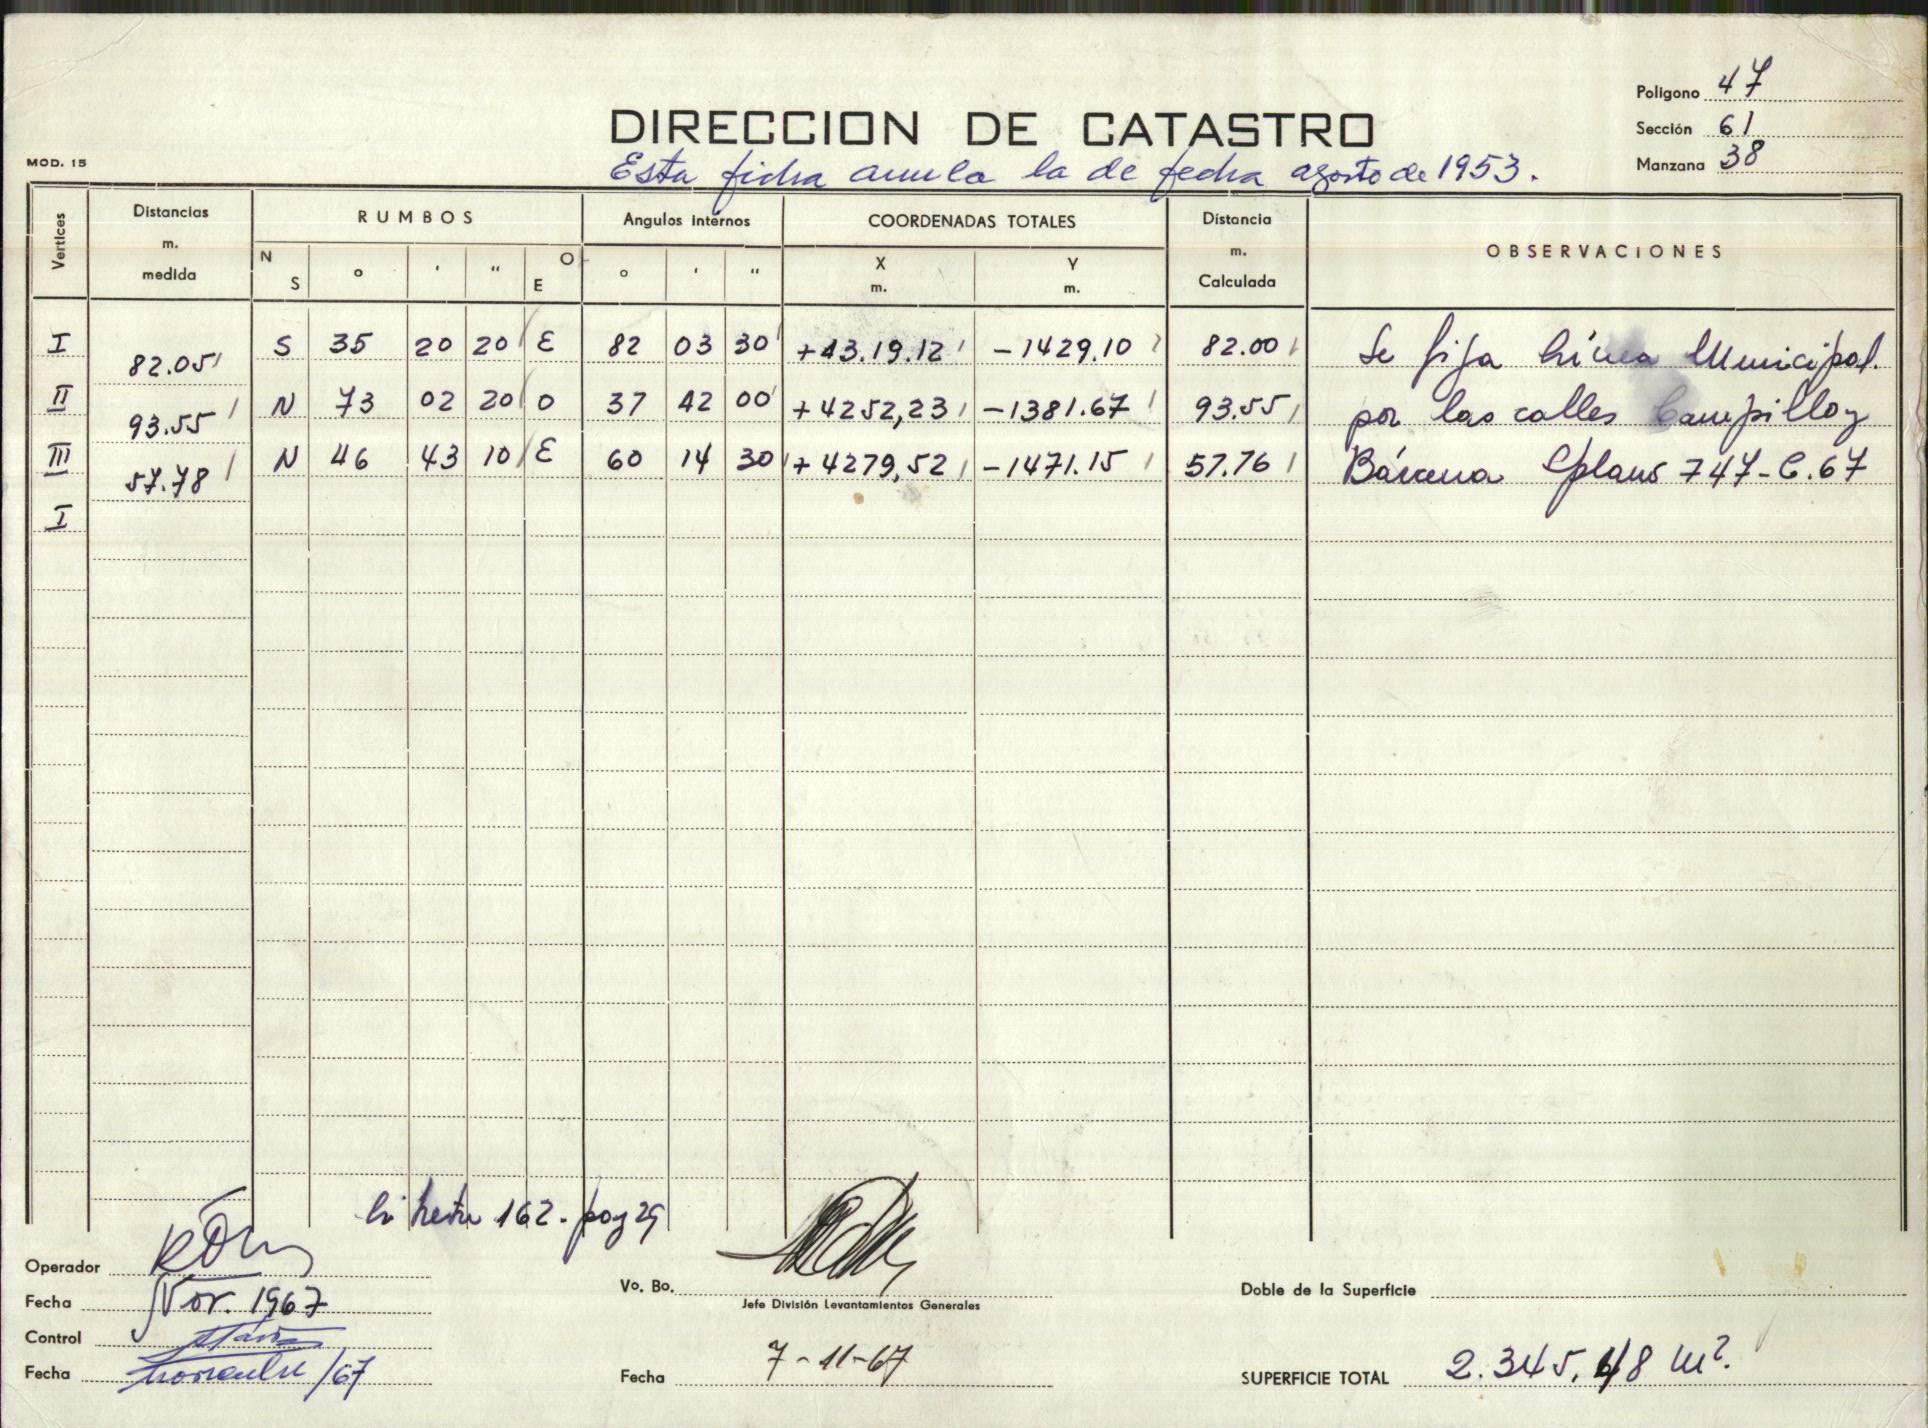 Poligono 47
DIRECCION DE CATASTRO
Sección 61
MOD. 15
Esta ficha anula la de fecha agosto de 1953.
Manzana 38
Vertices Distancias m. medida RUMBOS Angulos internos COORDENADAS TOTALES Distancia m. Calculada OBSERVACIONES
N S ° ' " O E ° ' " X m. Y m.
I S 35 20 20 E 82 03 30 +43.19.12 -1429.10 82.00 Se fija Línea Municipal.
82.05
II N 73 02 20 O 37 42 00 +4252,23 -1381.67 93.55 por las calles Campillo y
93.55
III N 46 43 10 E 60 14 30 +4279,52 -1471.15 57.76 Bárcena s/plano 747-C.67
57.78
I
162. pag 29
Operador
Fecha Nov. 1967
Vo. Bo.
Jefe División Levantamientos Generales
Doble de la Superficie
Control
Fecha noviembre/67
Fecha 7-11-67
SUPERFICIE TOTAL 2.345,48 m².